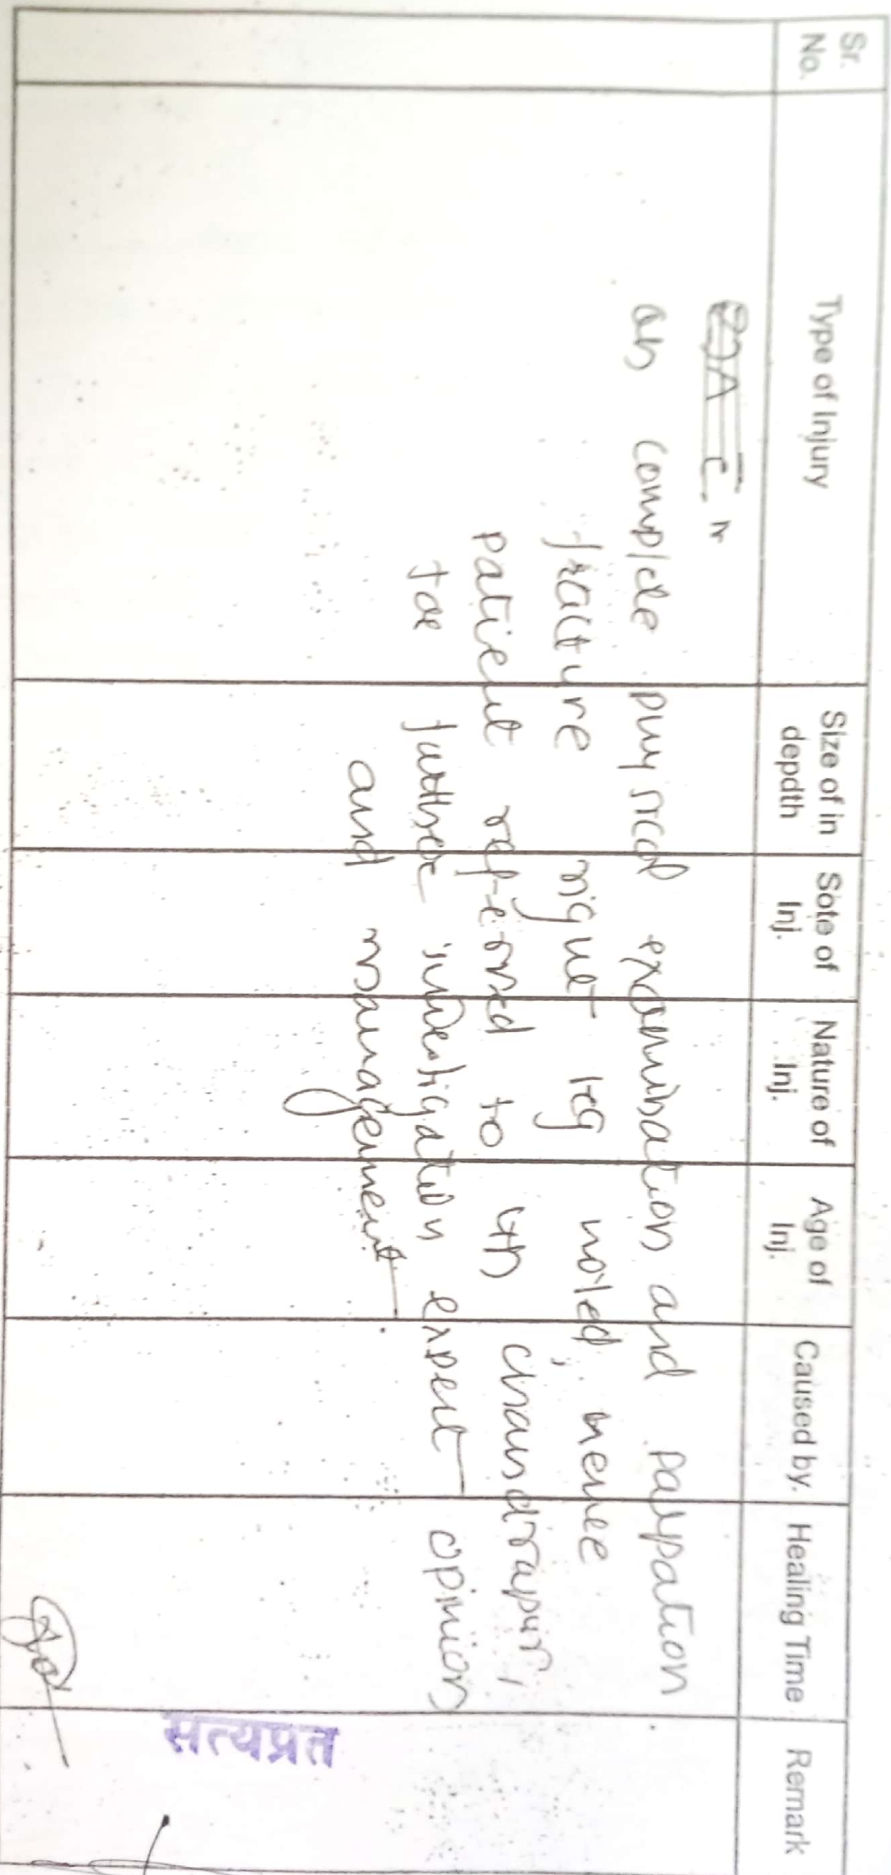 Sr. No.
Type of Injury
Size of in depdth
Sote of Inj.
Nature of Inj.
Age of Inj.
Caused by.
Healing Time
Remark
on complete physical examination and palpation
fracture right leg noted, hence
patient referred to chandrapur,
for further investigation expert opinion
and management
सत्यप्रत